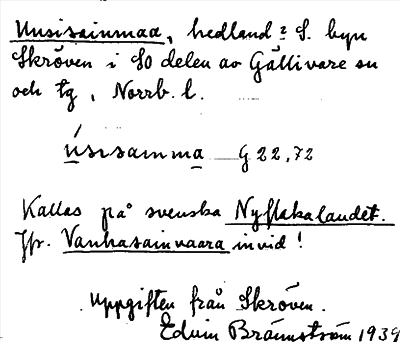 Uusisainmaa, hedland i S. byn
Skröven i SO delen av Gällivare sn
och tg, Norrb. l.
Úsisamma G 22,72
Kallas på svenska Nyflakalandet.
Jfr. Vanhasainvaara invid!
Uppgiften från Skröven.
Edvin Brännström 1939